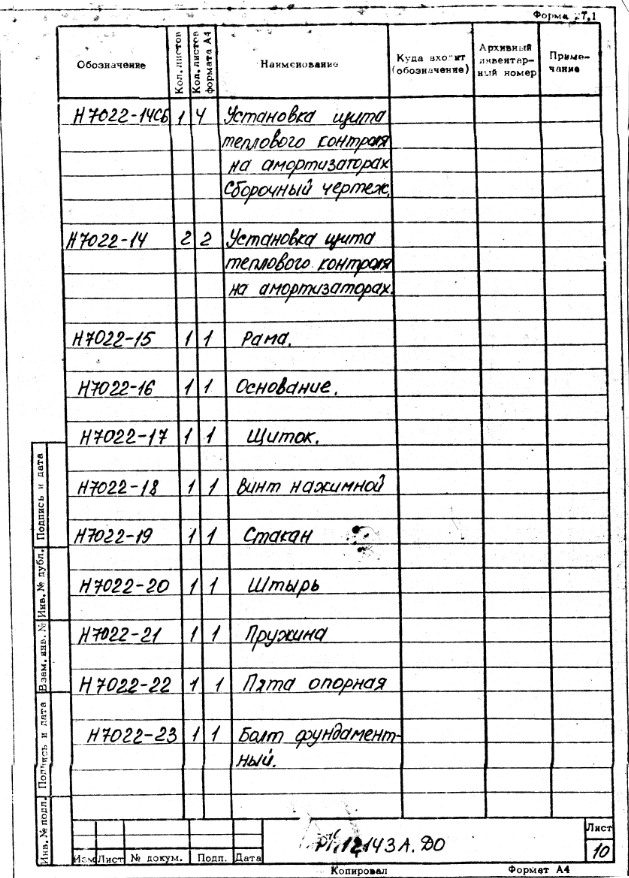 Форма 7.1
Обозначение Кол. листов Кол. листов формата А4 Наименование Куда входит (обозначение) Архивный инвентарный номер Примечание
Н7022-14СБ 1 4 Установка щита
теплового контроля
на амортизаторах
Сборочный чертеж.
Н7022-14 2 2 Установка щита
теплового контроля
на амортизаторах.
Н7022-15 1 1 Рама.
Н7022-16 1 1 Основание.
Н7022-17 1 1 Щиток.
Н7022-18 1 1 Винт нажимной
Н7022-19 1 1 Стакан
Н7022-20 1 1 Штырь
Н7022-21 1 1 Пружина
Н7022-22 1 1 Пята опорная
Н7022-23 1 1 Болт фундамент-
ный.
Инв. № подл. Подпись и дата Взам. инв. № Инв. № дубл. Подпись и дата
12143А.ДО
Лист
10
Изм Лист № докум. Подп. Дата
Копировал Формат А4